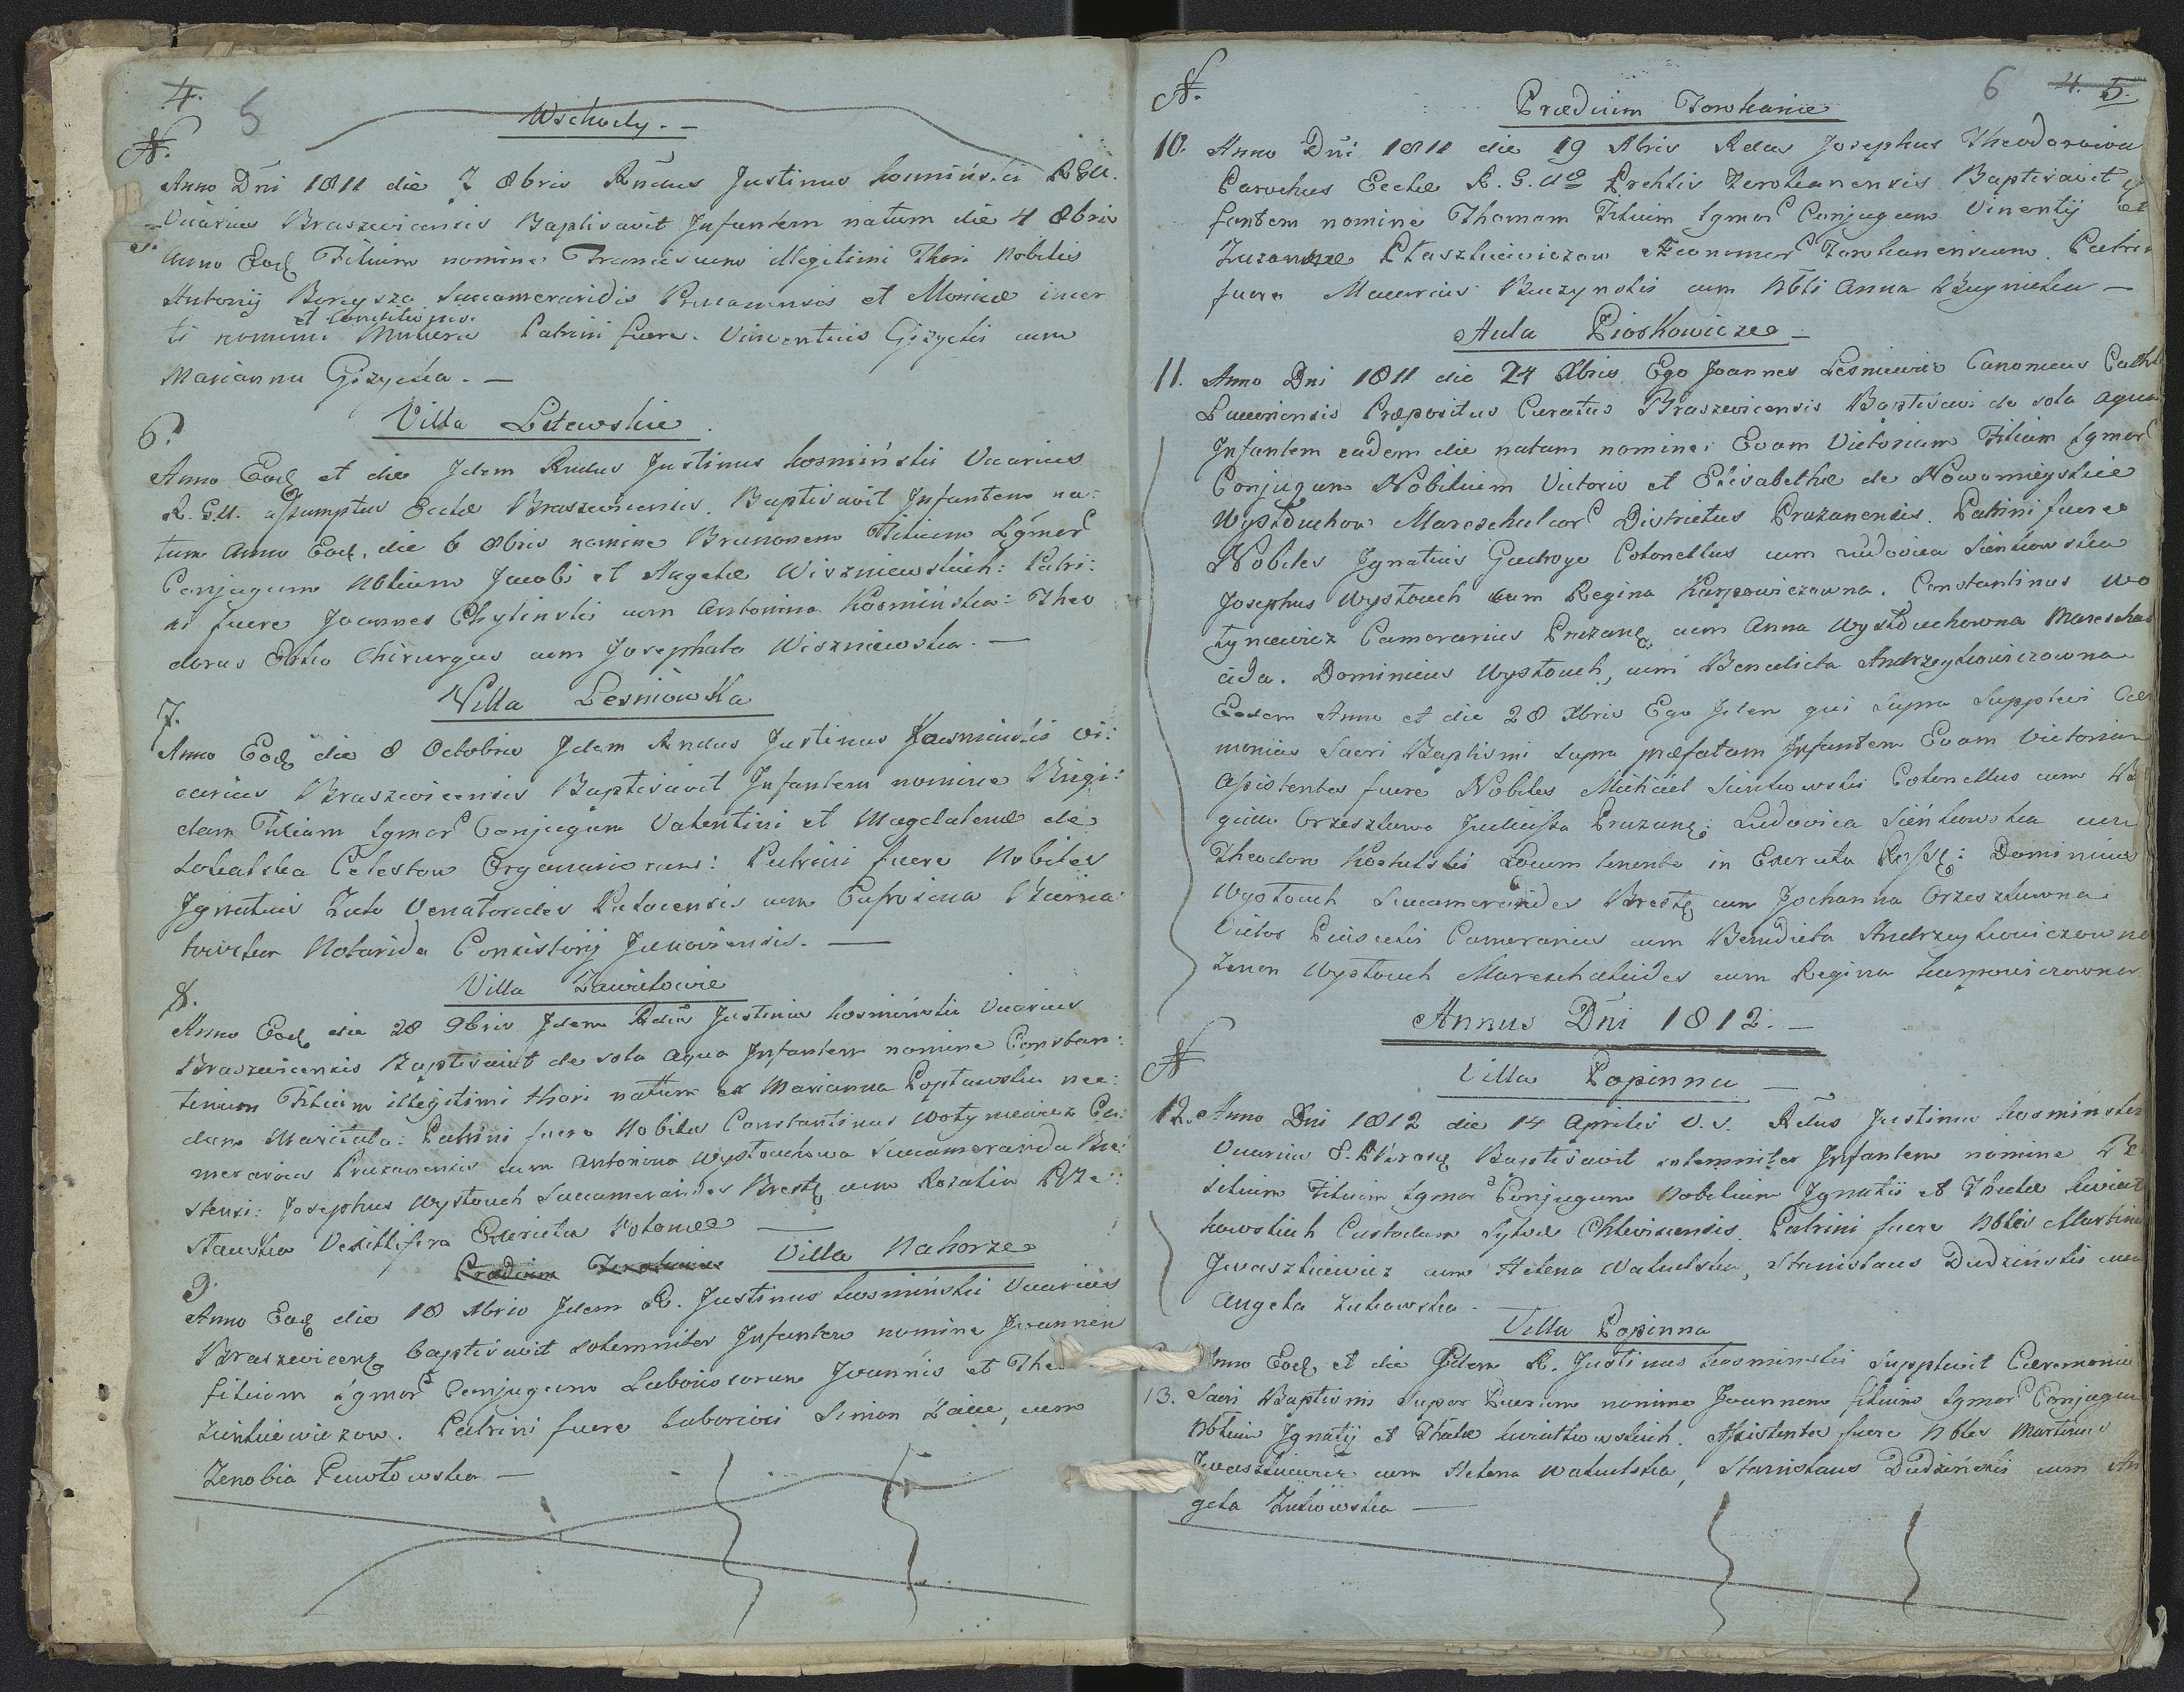 4. 5
Wschody. -
N.
Anno Dni 1811 die 7 8bris Rndus Justinus Kosmiński RGU.
Vicarius Braszevicensis Baptisavit Infantem natum die 4 8bris
5. Anno Eod Filium nomine Franciscum illegitimi Thori Nobilis
Antonij Borzysza Succameraridis et Monicae incer
et Conditionis
ti nominis Mulieris Patrini fuere. Vincentius Giżycki cum
Marianna Giżycka. -
Villa Litewskie.
6.
Anno Eod et die Idem Rndus Justinus Kosmiński Vicarius
R.G.U. assumptus Eccle Braszevicensis. Baptisavit Infantem na:
tum Anno Eod, die 6 8bris nomine Brunonem Filium Lgmor
Conjugum Nobilium Jacobi et Agathae Wiszniewskich: Patri:
ni fuere Joannes Chylinski cum Antonina Kosmińska: Theo
dorus Chirurgus cum Josephata Wiszniewska. -
Villa Lesniowka
7.
Anno Eod die 8 Octobris Idem Rndus Justinus Kosmiński Vi:
carius Braszevicensis Baptisavit Infantem nomine Brigi:
dam Filiam Lgmor Conjugum Valentini et Magdalenae de
Celestow Organariorum: Patrini fuere Nobiles
Ignatius Venatorides cum Eufrosina
Notarida Consistorij Janoviensis. -
Villa Zawielowie
8.
Anno Eod die 28 9bris Idem Rdus Justinus Kosmiński Vicarius
Braszevicensis Baptisavit de sola aqua Infantem nomine Constan:
tinum Filium illegitimi thori natum ex Marianna Popławska nec:
dum Maritata: Patrini fuere Nobiles Constantinus Wotyncewicz Ca:
merarius Pruzanensis cum Antonina Wystouchowa Succamerarida Bre:
stensi: Josephus Wystouch Succamerarides Brest cum Rozalia Rże:
Vexillifera Exercitus Poloniae -
Praedium Torokanie Villa Nahorze
9.
Anno Eod die 18 Xbris Idem R. Justinus Kosmiński Vicarius
Braszevicen baptisavit solemniter Infantem nomine Joannem
filium Lgmor Conjugum Laboriosorum Joannis et
Zinkiewiczow. Patrini fuere Laboriosi Simon cum
Zenobia Pawłowska -
N.
6 4. 5.
Praedium Torokanie
10. Anno Dni 1811 die 19 Xbris Rdus Josephus Theodorowicz
Parochus Eccle R.G.Uae Prchlis Torokanensis Baptisavit
fantem nomine Thomam Filium Lgmor Conjugum Vincentij et
Ptaszkiewiczow Oeconomor Torokanensium. Patrini
fuere Macarius Buczynski cum Nbli Anna -
Aula Pioskowicze -
11. Anno Dni 1811 die 24 Xbris Ego Joannes Lesniewicz Canonicus
Praepositus Curatus Braszevicensis Baptisavi de sola aqua
Infantem eadem die natam nomine: Evam Victoriam Filiam Lgmor
Conjugum Nobilium Victoris et Elisabethae de Nowomieyskie
Wystouchow Mareschalcor Districtus Pruzanensis. Patrini fuere
Nobiles Ignatius Giedroyc Colonellus cum Ludovica Sieńkowska
Josephus Wystouch cum Regina Karpowiczowna. Constantinus Wo
tyncewicz Camerarius Pruzan cum Anna Wystouchowna Mareschal
cida. Dominicus Wystouch, cum Benedicta Andrzeykowiczowna
Eodem Anno et die 28 Xbris Ego Idem qui supra supplevi Cae
monias Sacri Baptismi supra praefatam Infantem Evam Victoriam
Assistentes fuere Nobiles Michael Sieńkowski Colonellus cum
Orzeszkowa Pruzan: Ludovica Sieńkowska cum
Theodoro Locum tenente in Exercitu: Dominicus
Wystouch Succamerarides Brest cum Johanna Orzeszkowna
Victor Camerarius cum Benedicta Andrzeykowiczowna
Zenon Wystouch Mareschalcides cum Regina Karpowiczowna
Annus Dni 1812. -
N
Villa Popinna -
12. Anno Dni 1812 die 14 Aprilis V.S. Rdus Justinus Kosminski
Vicarius Baptisavit solemniter Infantem nomine
silium Filium Lgmor Conjugum Nobilium Ignatij et Theclae Kwiat
kowskich Custodum Sylvae Patrini fuere Nbles Martinus
Iwaszkiewicz cum Helena Walulska, Stanislaus Dudziński cum
Angela Zukowska.
Villa Popinna
Anno Eod et die Idem R. Justinus Kosminski supplevit Caeremonias
13. Sacri Baptismi super Puerum nomine Joannem filium Lgmor Conjugum
Nblium Ignatij et Theclae Kwiatkowskich. Assistentes fuere Nbles Martinus
Iwaszkiewicz cum Helena Walulska, Stanislaus Dudziński cum An
gela Zukowska -